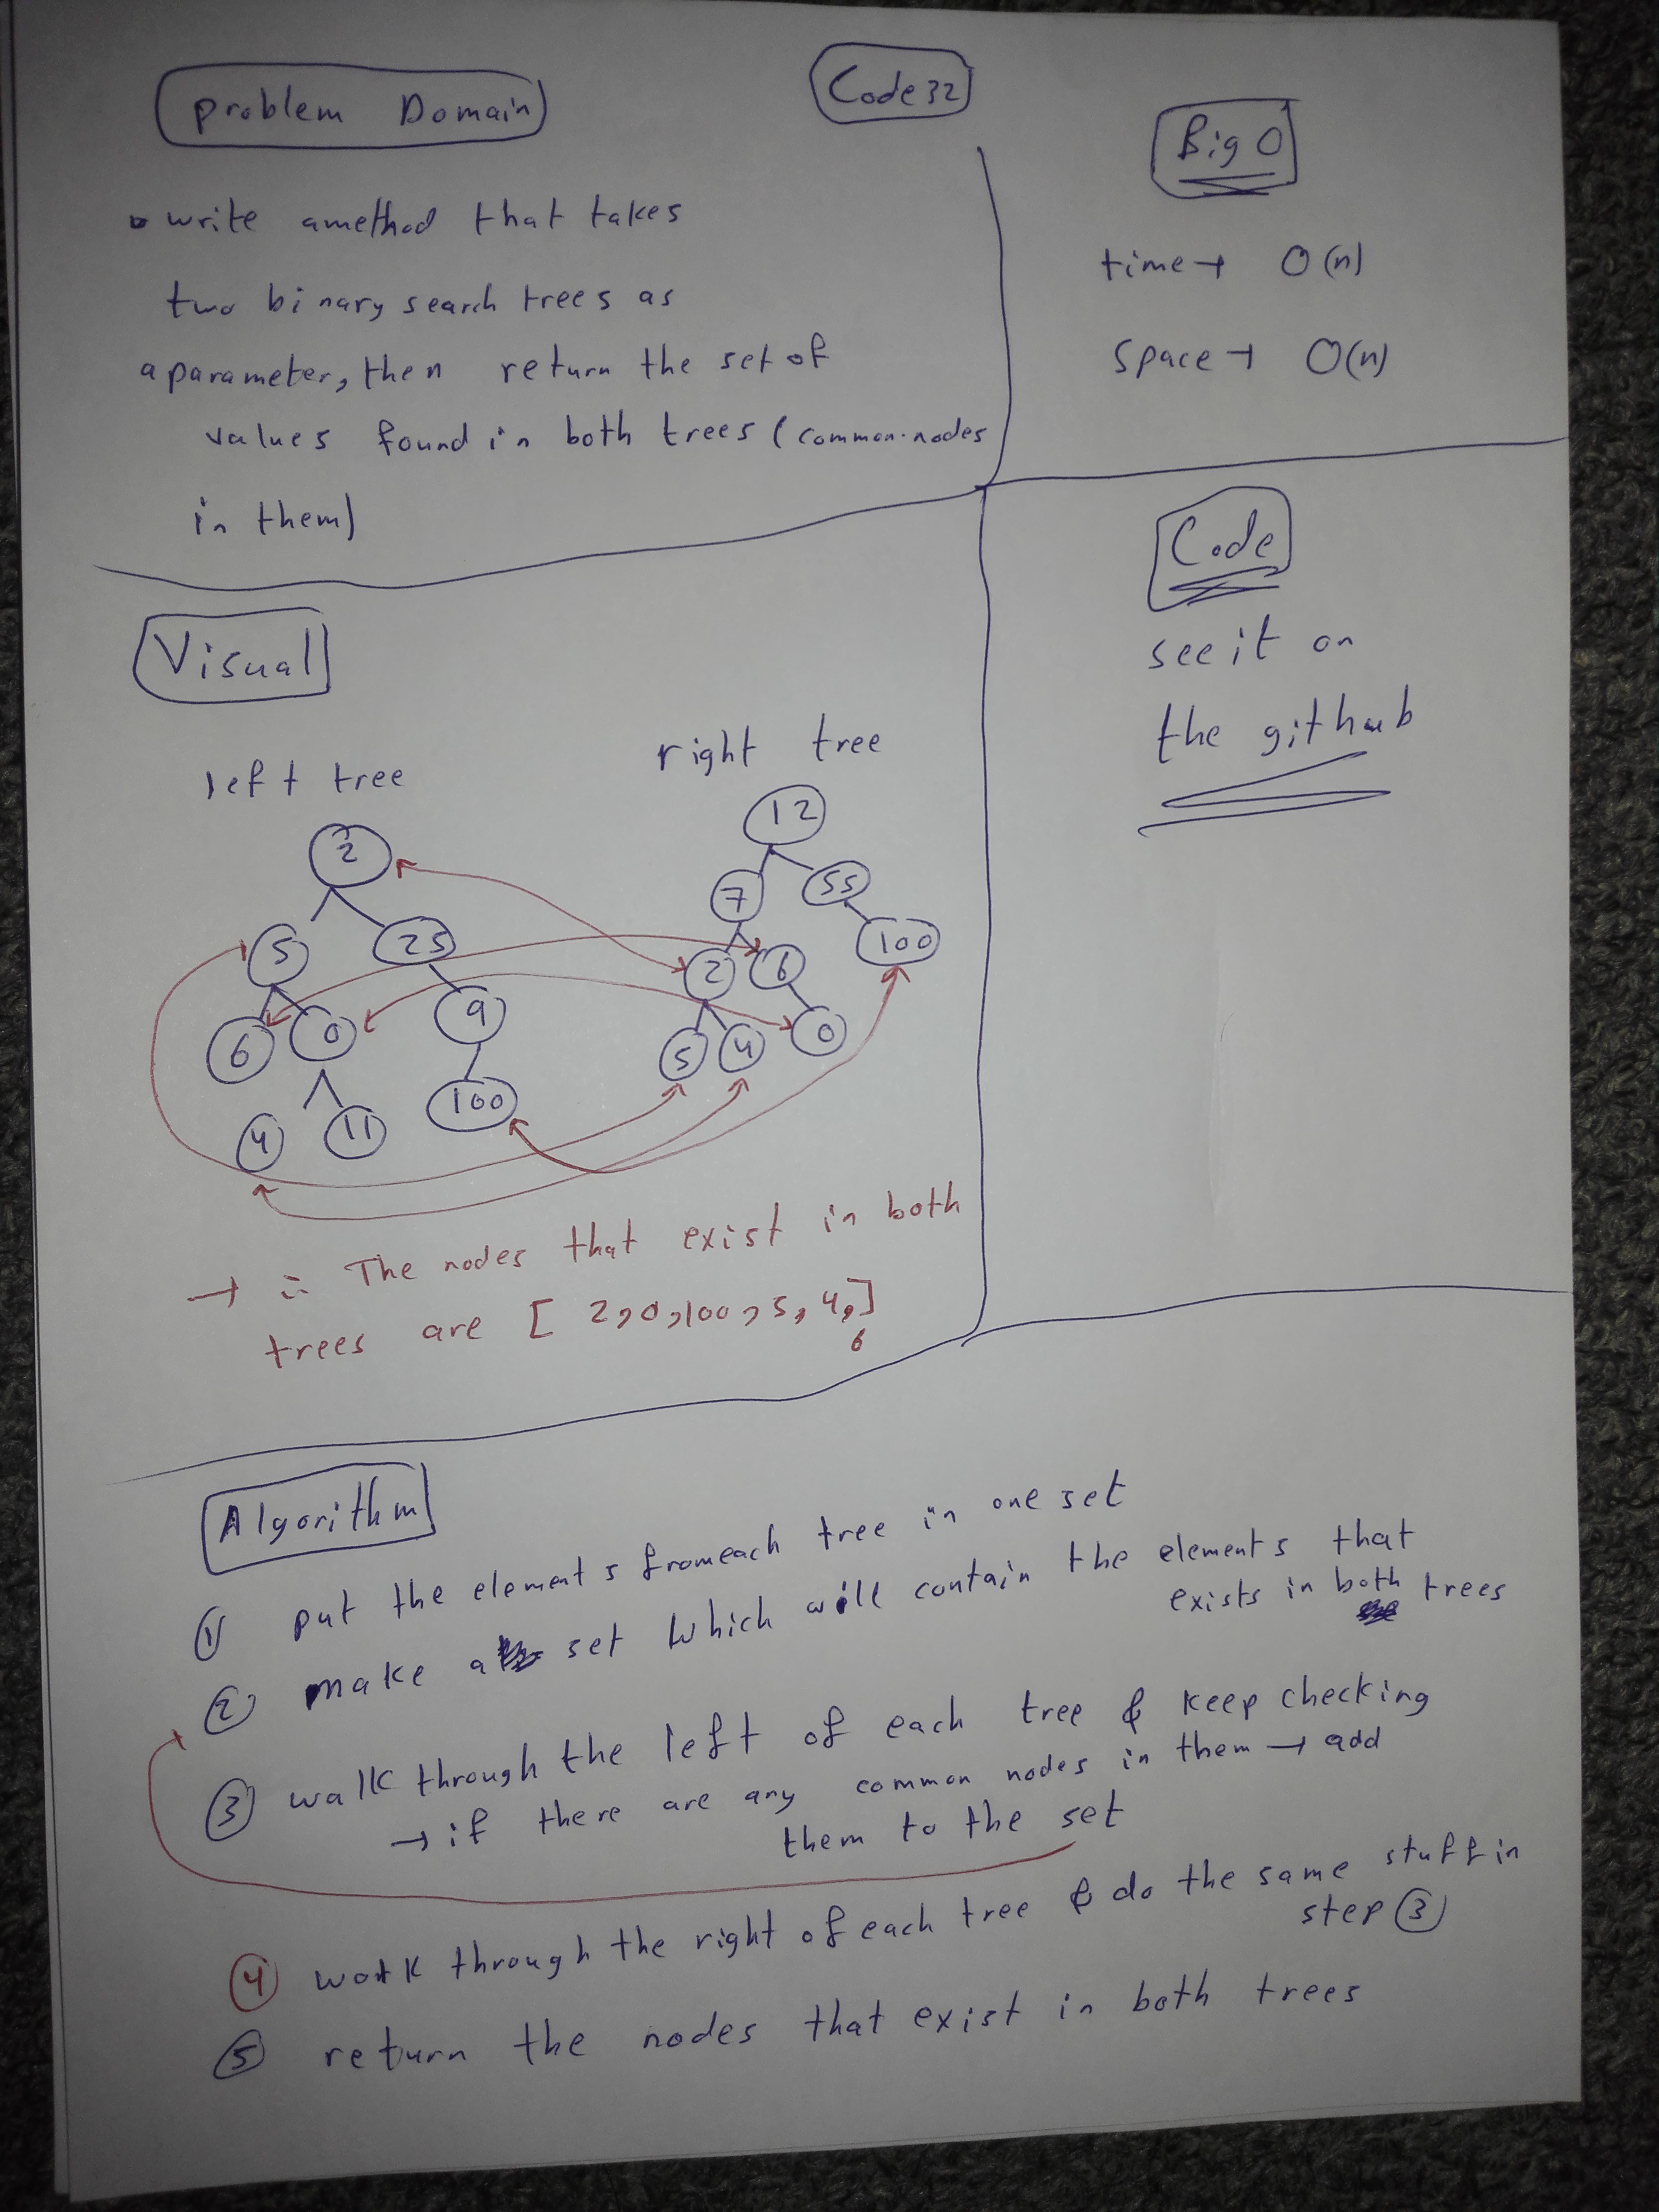 Code 32
problem Domain
write amethod that takes
two binary search trees as
aparameter, then return the set of
values found in both trees (common.nodes
in them)
Big O
time → O(n)
space → O(n)
Code
see it on
the github
Visual
left tree
2
5 25
6 0 9
4 11 100
right tree
12
7 55
2 6 100
5 4 0
→ ∴ The nodes that exist in both
trees are [ 2,0,100,5,4,]
6
Algorithm
① put the elements fromeach tree in one set
② make a set which will contain the elements that
exists in both trees
③ walk through the left of each tree & keep checking
→ if there are any common nodes in them → add
them to the set
④ walk through the right of each tree & do the same stuff in
step ③
⑤ return the nodes that exist in both trees